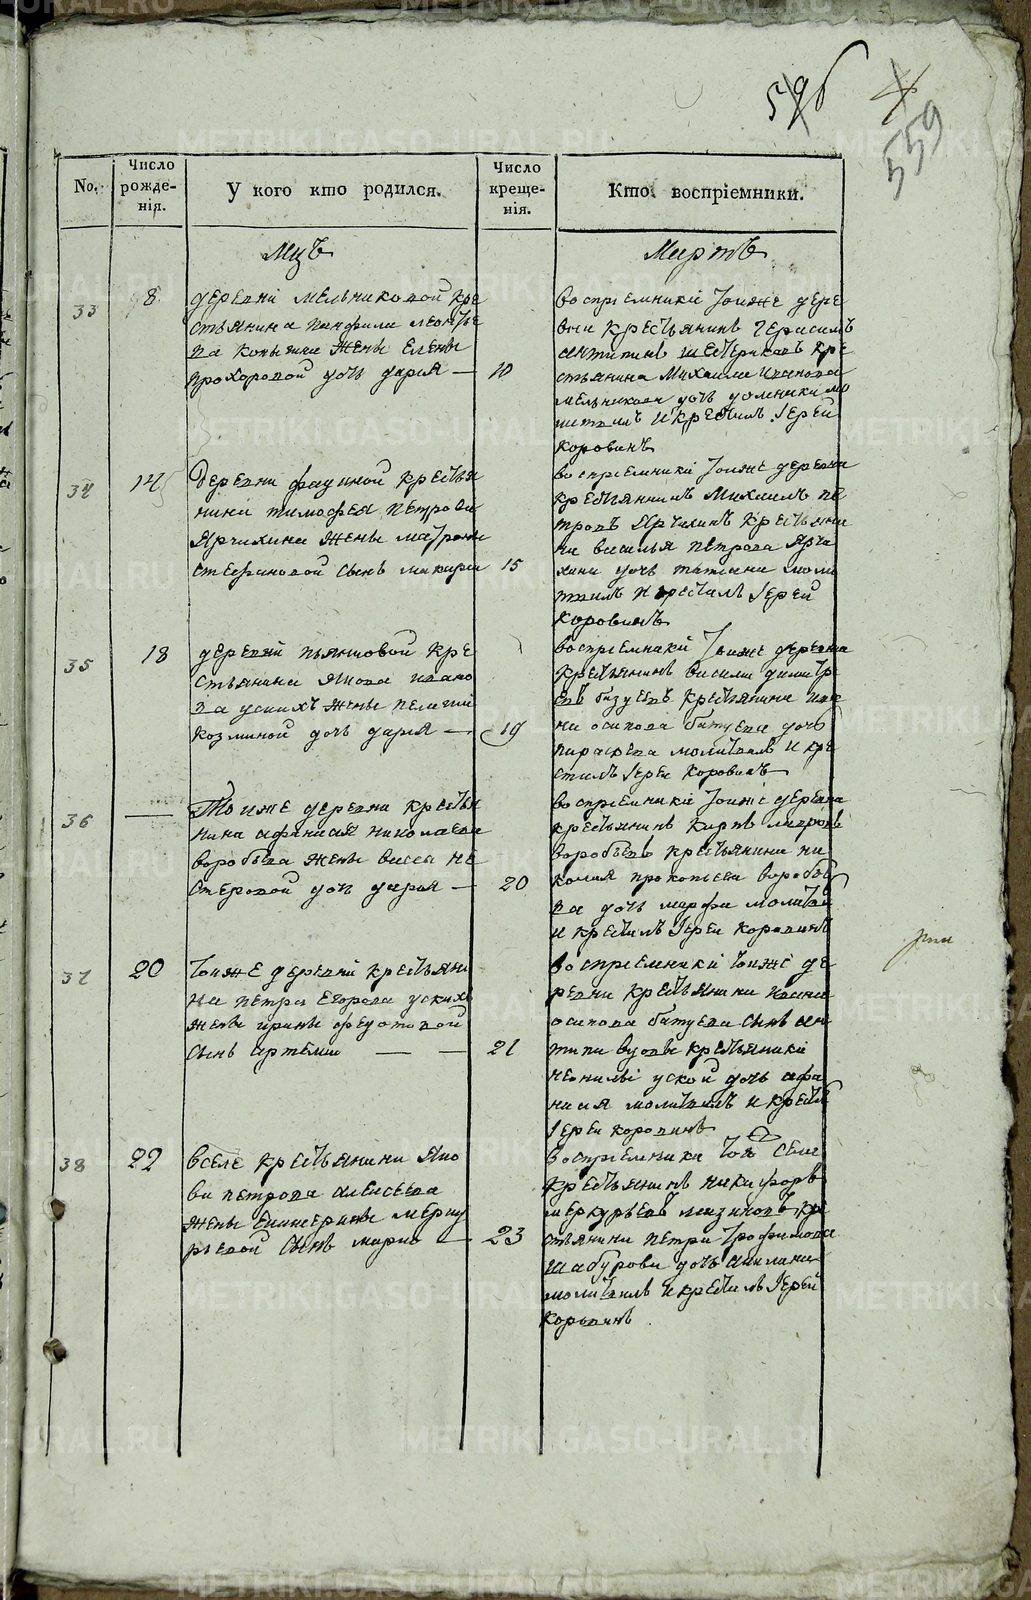 596
559
No.
Число рожде-
нія.
У кого кто родился.
Число креще-
нія.
Кто воспріемники.
Мцъ
Мартъ
33
8
деревни мельниковой кре
стьянина панфила леонтье
ва жены елены
прохоровой дочь дарья
10
воспрiемники тоиже дере
вни крестьянинъ герасимъ
антипинъ кре
стьянина михаила иванова
мельникова дочь
крестилъ iерей
коровинъ
34
14
деревни крестья
нина тимофея петрова
ярчихина жены матроны
стефановой сынъ макарiи
15
воспрiемники тоиже деревни
крестьянинъ михаилъ пе
тровъ ярчихинъ крестьяни
на василья петрова ярчи
хина дочь татьяна моли
твилъ и крестилъ iерей
коровинъ
35
18
деревни пьянковой кре
стьянина якова ивано
ва ускихъ жены пелагiи
козминой дочь дарья
19
воспрiемники тоиже деревни
крестьянинъ василiи димитр
евъ крестьянина ива
на осипова дочь
параскева молитвилъ и кре
стилъ iереи коровинъ
36
тоиже деревни крестья
нина афанасья николаева
воробьева жены васы не
стеровой дочь дарья
20
воспрiемники тоиже деревни
крестьянинъ карпъ
воробьевъ крестьянина ни
колая прокопьева воробье
ва дочь марфа молитвил
и крестилъ iереи коровинъ
37
20
тоиже деревни крестьяни
на петра егорова ускихъ
жены ирины федотовой
сынъ артемiи
21
воспрiемники тоиже де
ревни крестьянина ивана
осипова сынъ ан
типа вдовы крестьянки
неонилы уской дочь афа
насия молитвилъ и крестил
iереи коровинъ
38
22
вселе крестьянина яко
ва петрова алексеева
жены екатерины мерку
рьевой сынъ марко
23
воспрiемники тоя села
крестьянинъ никифоръ
меркурьевъ мизиновъ кре
стьянина петра трофимова
шабурова дочь акилина
молитвилъ и крестилъ iерей
коровинъ